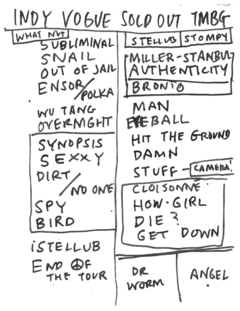 INDY VOGUE SOLD OUT TMBG
WHAT NYT
SUBLIMINAL
SNAIL
OUT OF JAIL
ENSOR/
POLKA
WU TANG
OVERNIGHT
SYNOPSIS
SEXXY
DIRT/
NO ONE
SPY
BIRD
iSTELLUB
END OF
THE TOUR
STELLUB STOMPY
MILLER-STANBUL
AUTHENTICITY
BRONTO
MAN
EYEBALL
HIT THE GROUND
DAMN
STUFF - CAMERA
CLOISONNÉ
HOW-GIRL
DIE?
GET DOWN
DR
WORM
ANGEL